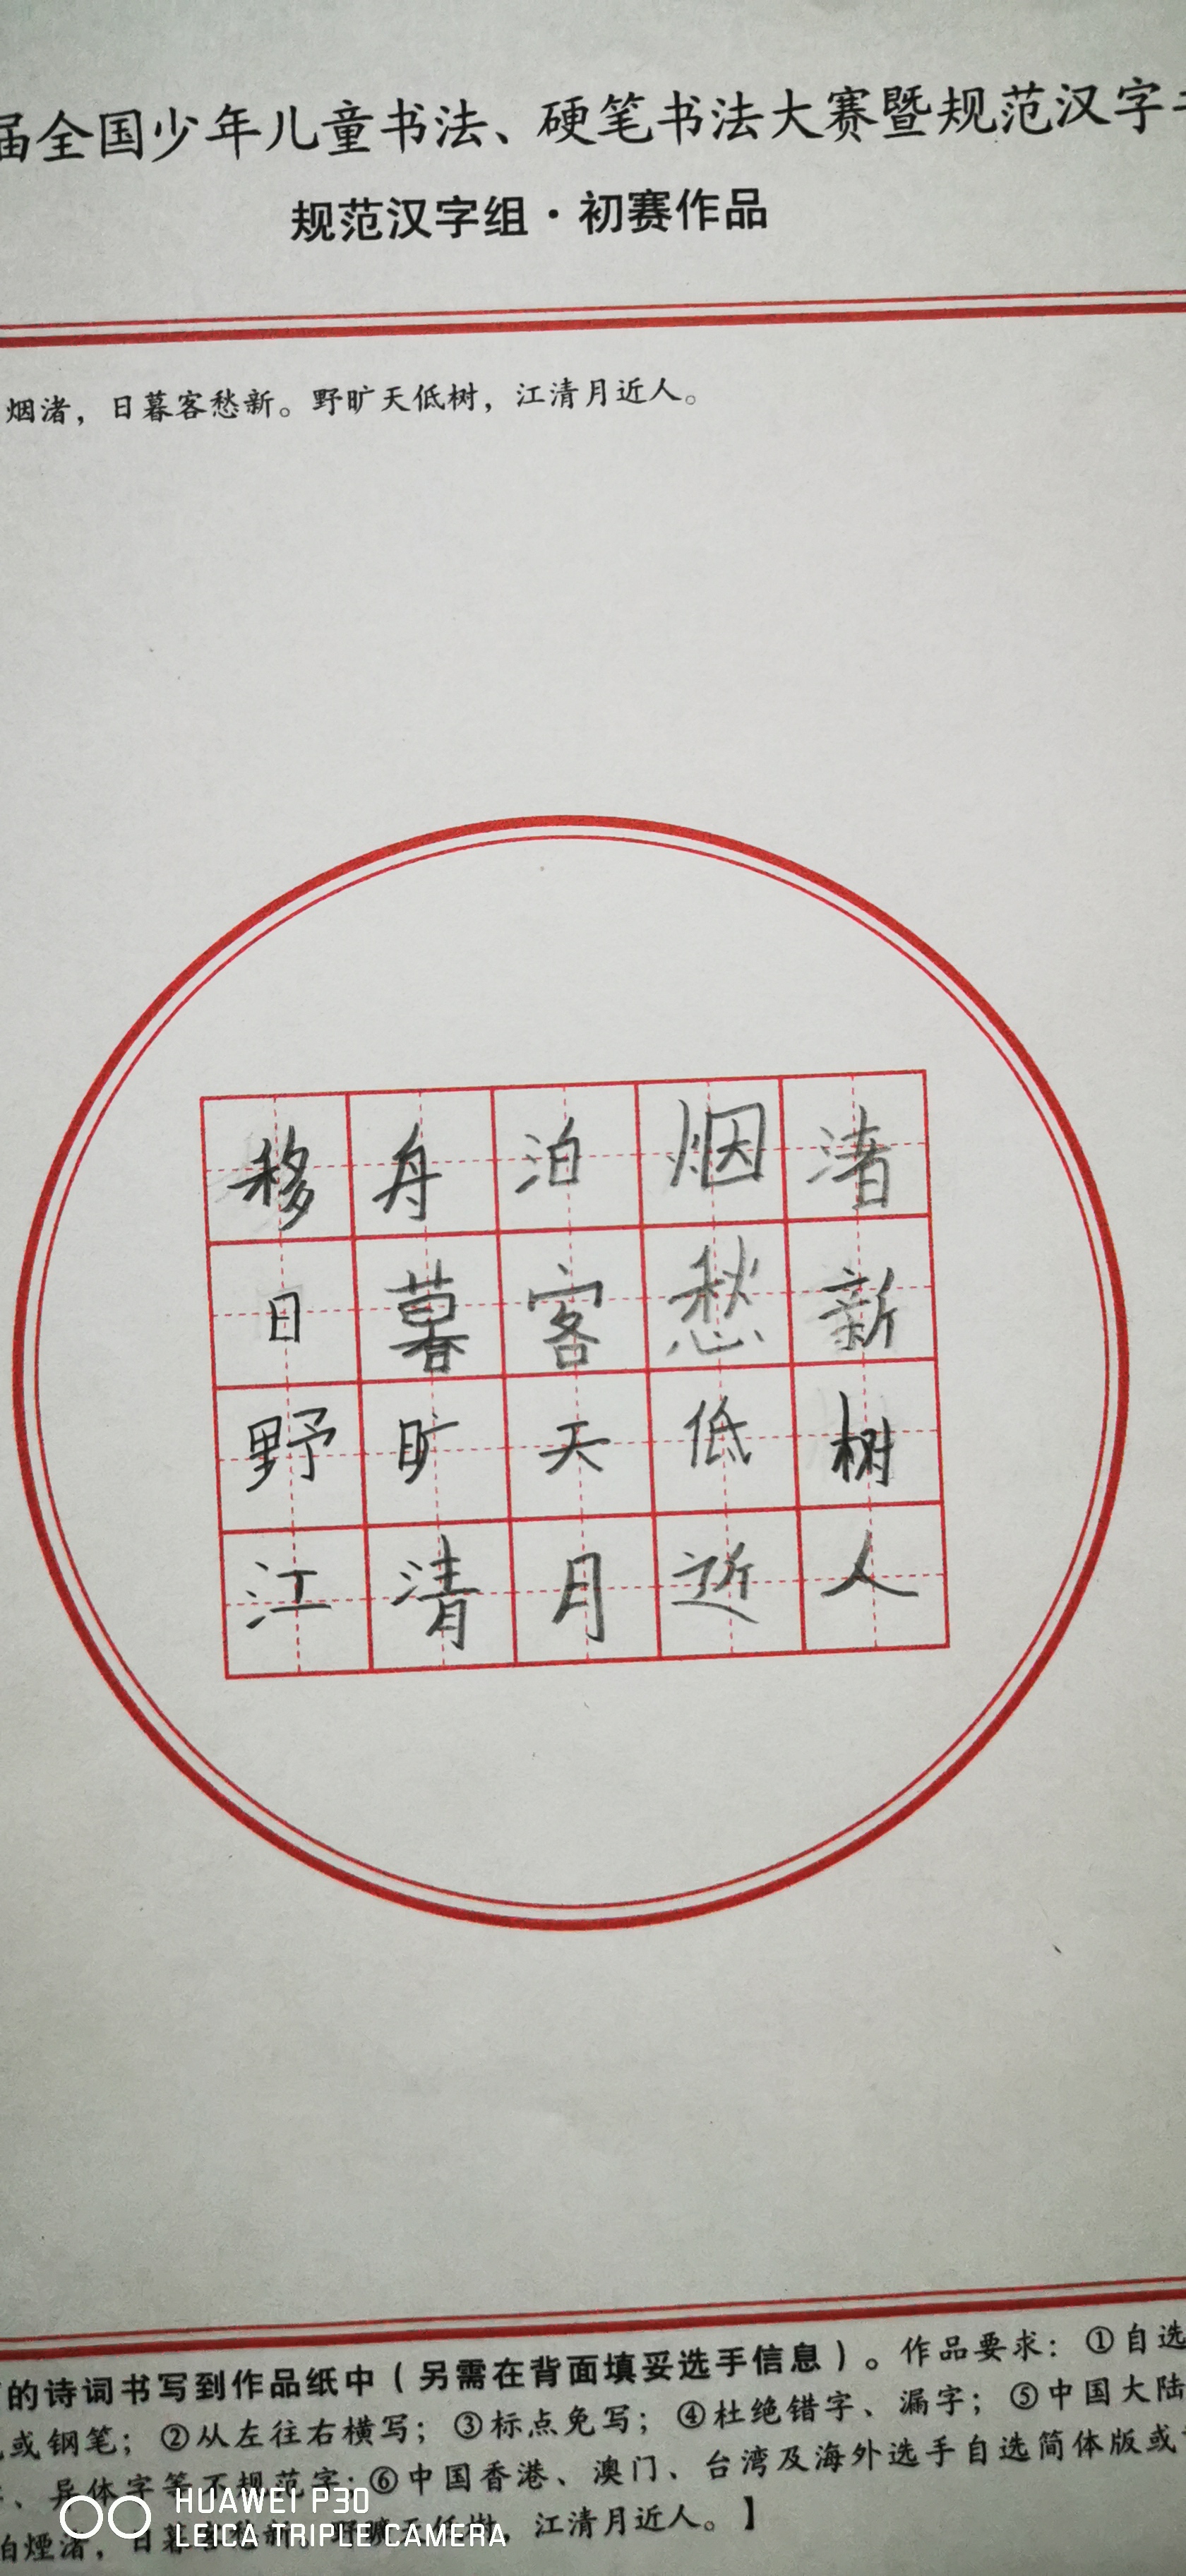 届全国少年儿童书法、硬笔书法大赛暨规范汉字
规范汉字组·初赛作品
烟渚，日暮客愁新。野旷天低树，江清月近人。
移舟泊烟渚
日暮客愁新
野旷天低树
江清月近人
的诗词书写到作品纸中（另需在背面填妥选手信息）。作品要求：①自选
或钢笔；②从左往右横写；③标点免写；④杜绝错字、漏字；⑤中国大陆
、异体字等不规范字；⑥中国香港、澳门、台湾及海外选手自选简体版或
泊煙渚，日暮客愁新。野曠天低樹，江清月近人。】
HUAWEI P30
LEICA TRIPLE CAMERA